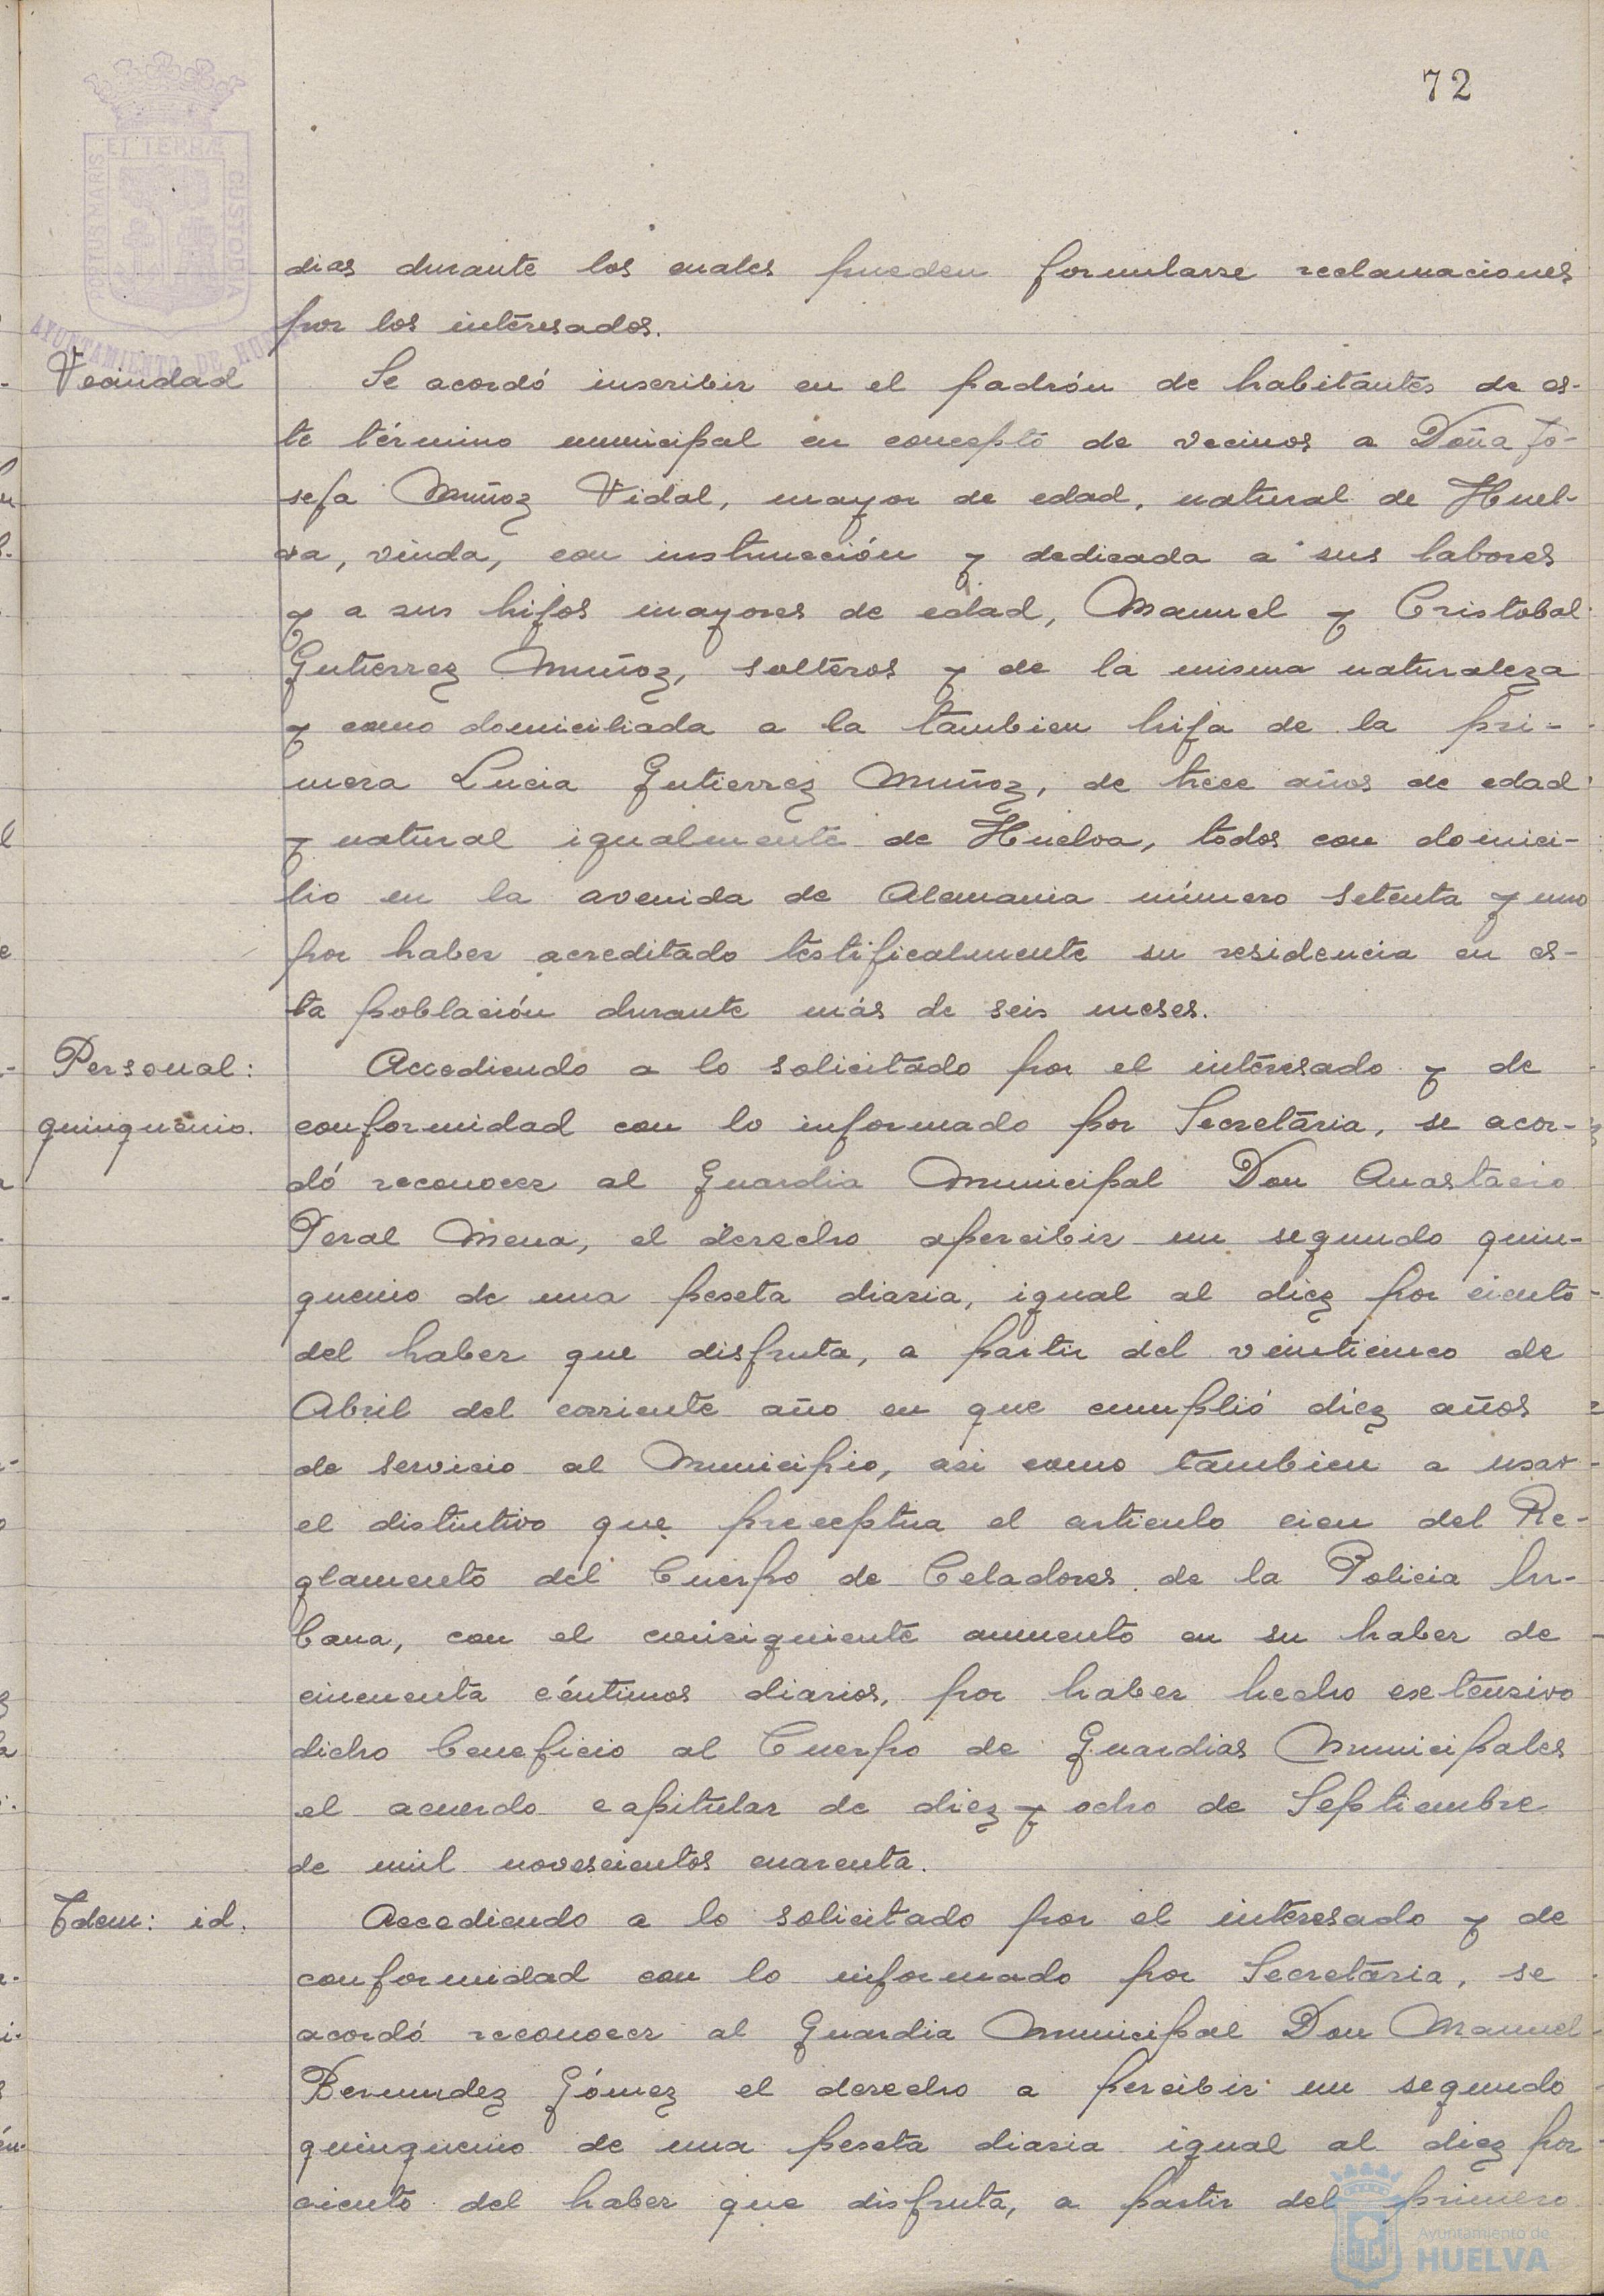 72
PORTUS MARIS ET TERRÆ CUSTODIA
AYUNTAMIENTO DE HUELVA
dias durante los cuales pueden formularse reclamaciones
por los interesados.
Vecindad
Se acordó inscribir en el padrón de habitantes de es-
te término municipal en concepto de vecinos a Doña Jo-
sefa Muñoz Vidal, mayor de edad, natural de Huel-
va, viuda, con instrucción y dedicada a sus labores
y a sus hijos mayores de edad, Manuel y Cristobal
Gutierrez Muñoz, solteros y de la misma naturaleza
y como domiciliada a la tambien hija de la pri-
mera Lucia Gutierrez Muñoz, de trece años de edad
y natural igualmente de Huelva, todos con domici-
lio en la avenida de Alemania número setenta y uno
por haber acreditado testificalmente su residencia en es-
ta población durante más de seis meses.
Personal:
quinquenio.
Accediendo a lo solicitado por el interesado y de
conformidad con lo informado por Secretaria, se acor-
dó reconocer al Guardia Municipal Don Anastacio
Peral Mena, el derecho apercibir un segundo quin-
quenio de una peseta diaria, igual al diez por ciento
del haber que disfruta, a partir del veinticinco de
Abril del corriente año en que cumplió diez años
de servicio al Municipio, asi como tambien a usar
el distintivo que preceptua el articulo cien del Re-
glamento del Cuerpo de Celadores de la Policia Ur-
bana, con el consiguiente aumento en su haber de
cincuenta céntimos diarios, por haber hecho extensivo
dicho beneficio al Cuerpo de Guardias Municipales
el acuerdo capitular de diez y ocho de Septiembre
de mil novescientos cuarenta.
Idem: id.
Accediendo a lo solicitado por el interesado y de
conformidad con lo informado por Secretaria, se
acordó reconocer al Guardia Municipal Don Manuel
Bermudez Gómez el derecho a percibir un segundo
quinquenio de una peseta diaria igual al diez por
ciento del haber que disfruta, a partir del primero
Ayuntamiento de
HUELVA